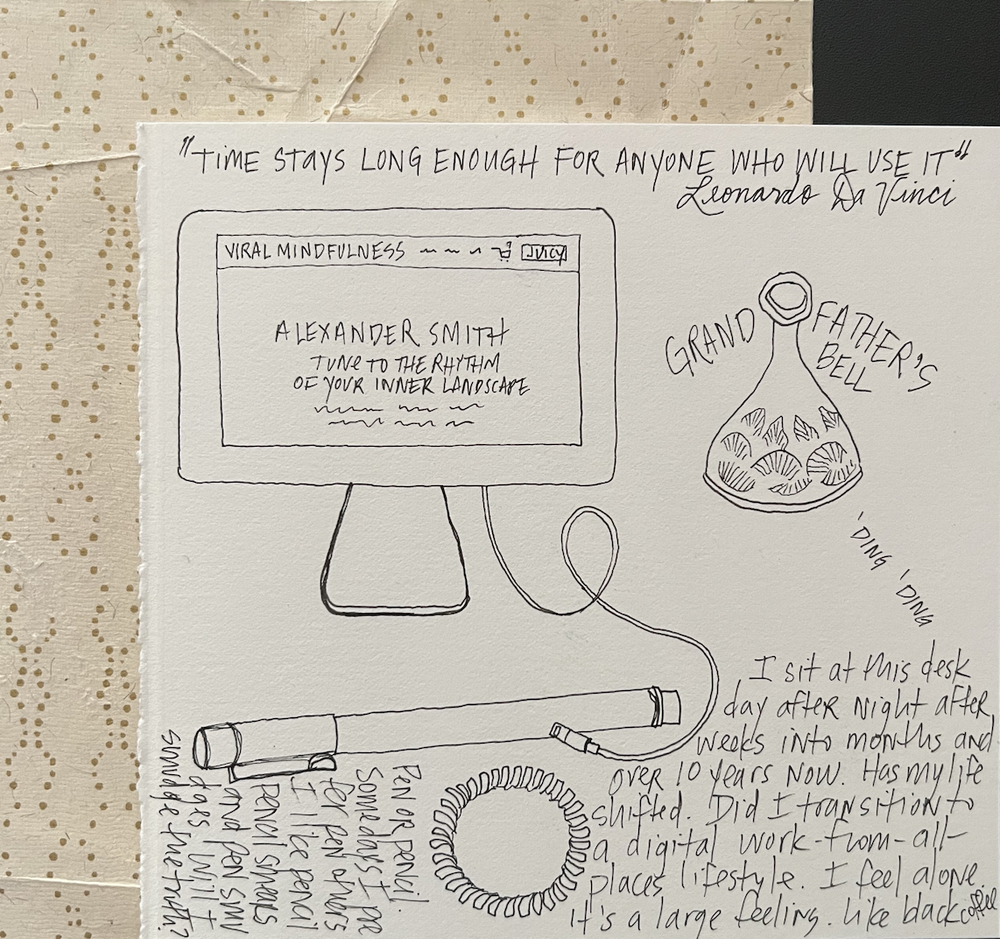 "TIME STAYS LONG ENOUGH FOR ANYONE WHO WILL USE IT"
Leonardo Da Vinci
VIRAL MINDFULNESS
JUICY
ALEXANDER SMITH
TUNE TO THE RHYTHM
OF YOUR INNER LANDSCAPE
GRAND FATHER'S
BELL
'DING 'DING
I sit at this desk
day after night after
weeks into months and
over 10 years now. Has my life
shifted. Did I transition to
a digital work-from-all-
places lifestyle. I feel alone.
It's a large feeling. Like black coffee
Pen or pencil.
Some days I pe
fer pen others
I like pencil
Pencil smears
and pen smu
dges. Will I
smudge the truth?